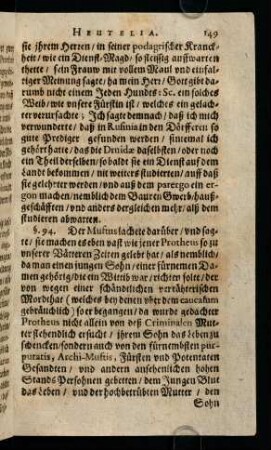 HEUTELIA. 149
sie jhrem Herren / in seiner podagrischer Kranck-
heit / wie ein Dienst-Magd / so fleissig auffwarten
thette / sein Frauw mit vollem Maul und einfal-
tiger Meinung sagte / ha mein Herr / Gott gibt da-
rumb nicht einem Jeden Hundes: Sc. ein solches
Weib / wie unsere Fürstin ist / welches ein geläch-
ter verursachte; Ich sagte demnach / daß ich mich
verwunderte / daß in Rusinia in den Dörfferen so
gute Prediger gefunden werden / sintemal ich
gehört hatte / daß die Druidæ daselbsten / oder noch
ein Theil derselben / so bald sie ein Dienst auff dem
Landt bekommen / nit weiters studierten / auff daß
sie gelehrter werden / und auß dem parergo ein er-
gon machen / nemblich dem Bauren Gwerb / hauß-
geschäfften / und anders dergleichen mehr / alß dem
studieren abwarten.
§. 94. Der Muftus lachete darüber / und sag-
te / sie machen es eben vast wie jener Protheus so zu
unserer Vätteren Zeiten gelebt hat / als nemblich
da man einen jungen Sohn / einer fürnemen Da-
men gehörig / die ein Wittib war / richten solte / der
von wegen einer schändtlichen verrähterischen
Mordthat (welches bey denen über dem caucasum
gebräuchlich) so er begangen / da wurde gedachter
Protheus nicht allein von deß Criminalen Mut-
ter flehendlich ersucht / ihrem Sohn das Leben zu
schencken / sondern auch von den fürnembsten pur-
puratis, Archi-Muftis, Fürsten und Potentaten
Gesandten / und andern ansehenlichen hohen
Stands Persohnen gebetten / dem Jungen Blut
das Leben / und der hochbetrübten Mutter / den
Sohn